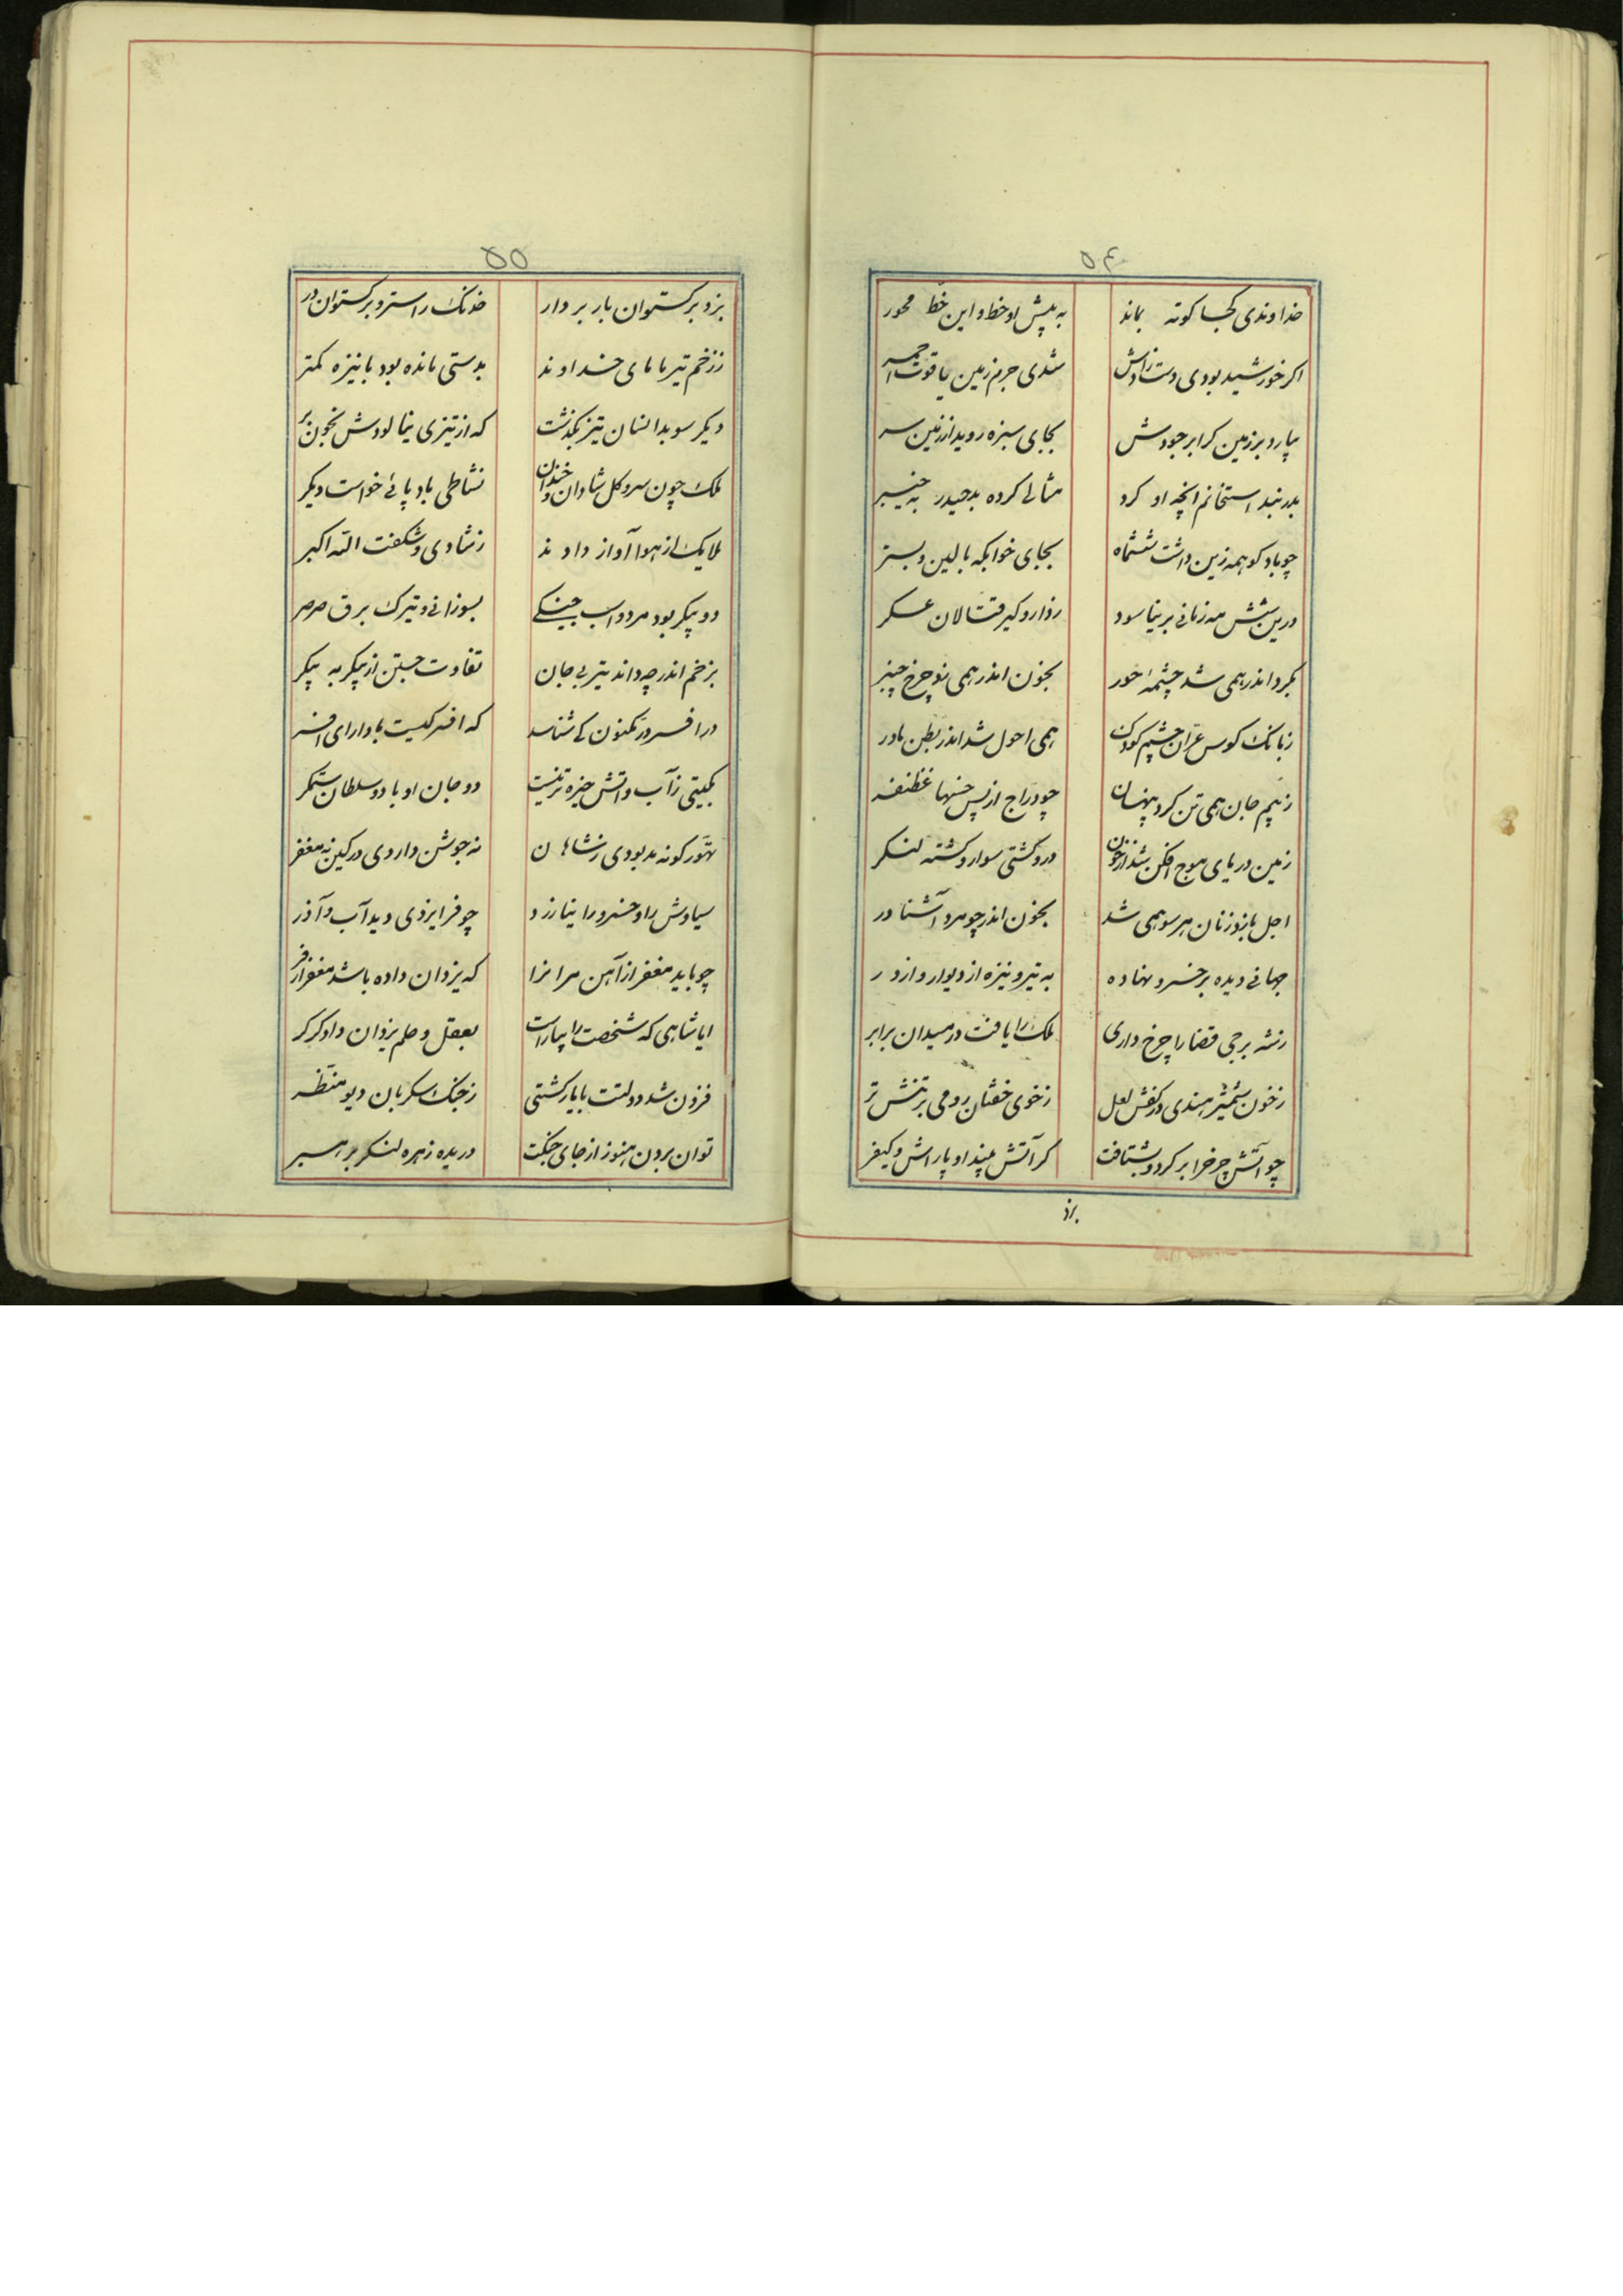 ۵۴
خداوندی کجا کوته بماند به پیش او خط و این خط محور
اکر خورشید بودی دست رادش شدی جرم زمین یاقوت احمر
ببارد بر زمین کر ابر جودش بجای سبزه روید از زمین سر
بدربند استخانم انچه او کرد مثالی کرده بد حیدر به خیبر
چو باد کو همه زین داشت ششماه بجای خوابکه بالین و بستر
درین شش مه زمانی بر نیاسود ز دار و کیر و قتالان عسکر
بکرد اندر همی شد چشمهٔ خور بخون اندر همی نو چرخ چنبر
ز بانک کوس غران چشم کودک همی احول شد اندر بطن مادر
ز بیم جان همی تن کرد پنهان چو دراج از پس خسها غظنفر
زمین دریای موج افکن شد از خون درو کشتی سوار و کشته لنکر
اجل بازو زنان هر سو همی شد بخون اندر چو مرد آشناور
جهانی دیده بر خسرو نهاده به تیر و نیزه از دیوار و از در
نشه برجی قضا را چرخ داری ملک را یافت در میدان برابر
ز خون شمشیر هندی در کفش لعل ز خوی خفتان رومی بر تنش تر
چو آتش چرخ را بر کرد و بشتافت کر آتش بیند او پاداش و کیفر
بزد
۵۵
بزد بر کستوان بار بردار خدنک راسترو بر کستوان در
ز زخم تیر با مای خداوند بدستی مانده بود با نیزه کمتر
دیکر سو بدانسان تیز بکذشت که از تیزی نیالودش بخون پر
ملک چون سرو کل شادان و خندان نشاطی باد پائی خواست دیکر
ملایک از هوا آواز دادند ز شادی و شکفت الله اکبر
دو پیکر بود مرد و اسب جنکی بسوزانی و تیزک برق صرصر
بزخم اندر چه داند تیر بی جان تفاوت جستن از پیکر به پیکر
در افسر در مکنون کی شناسد که افسر کیست با دارای افسر
بکیتی ز آب و اتش خیره تر نیست دو جان اوبا دو سلطان ستمکر
تهور کونه بد بودی ز شاهان نه جوشن داردی در کین نه مغفر
سیاوش را و خسرو را نیازرد چو فر ایزدی دید آب و آذر
چو باید مغفر از آهن مر انرا که یزدان داده باشد مغفر از فر
ایا شاهی که شخصت را بیاراست بعقل و حلم یزدان دادکر کر
فزون شد دولتت با یار کشتی ز جنک سکربان دیو منظر
توان بردن هنوز از جای جنکت دریده زهره لنکر بر هسیر